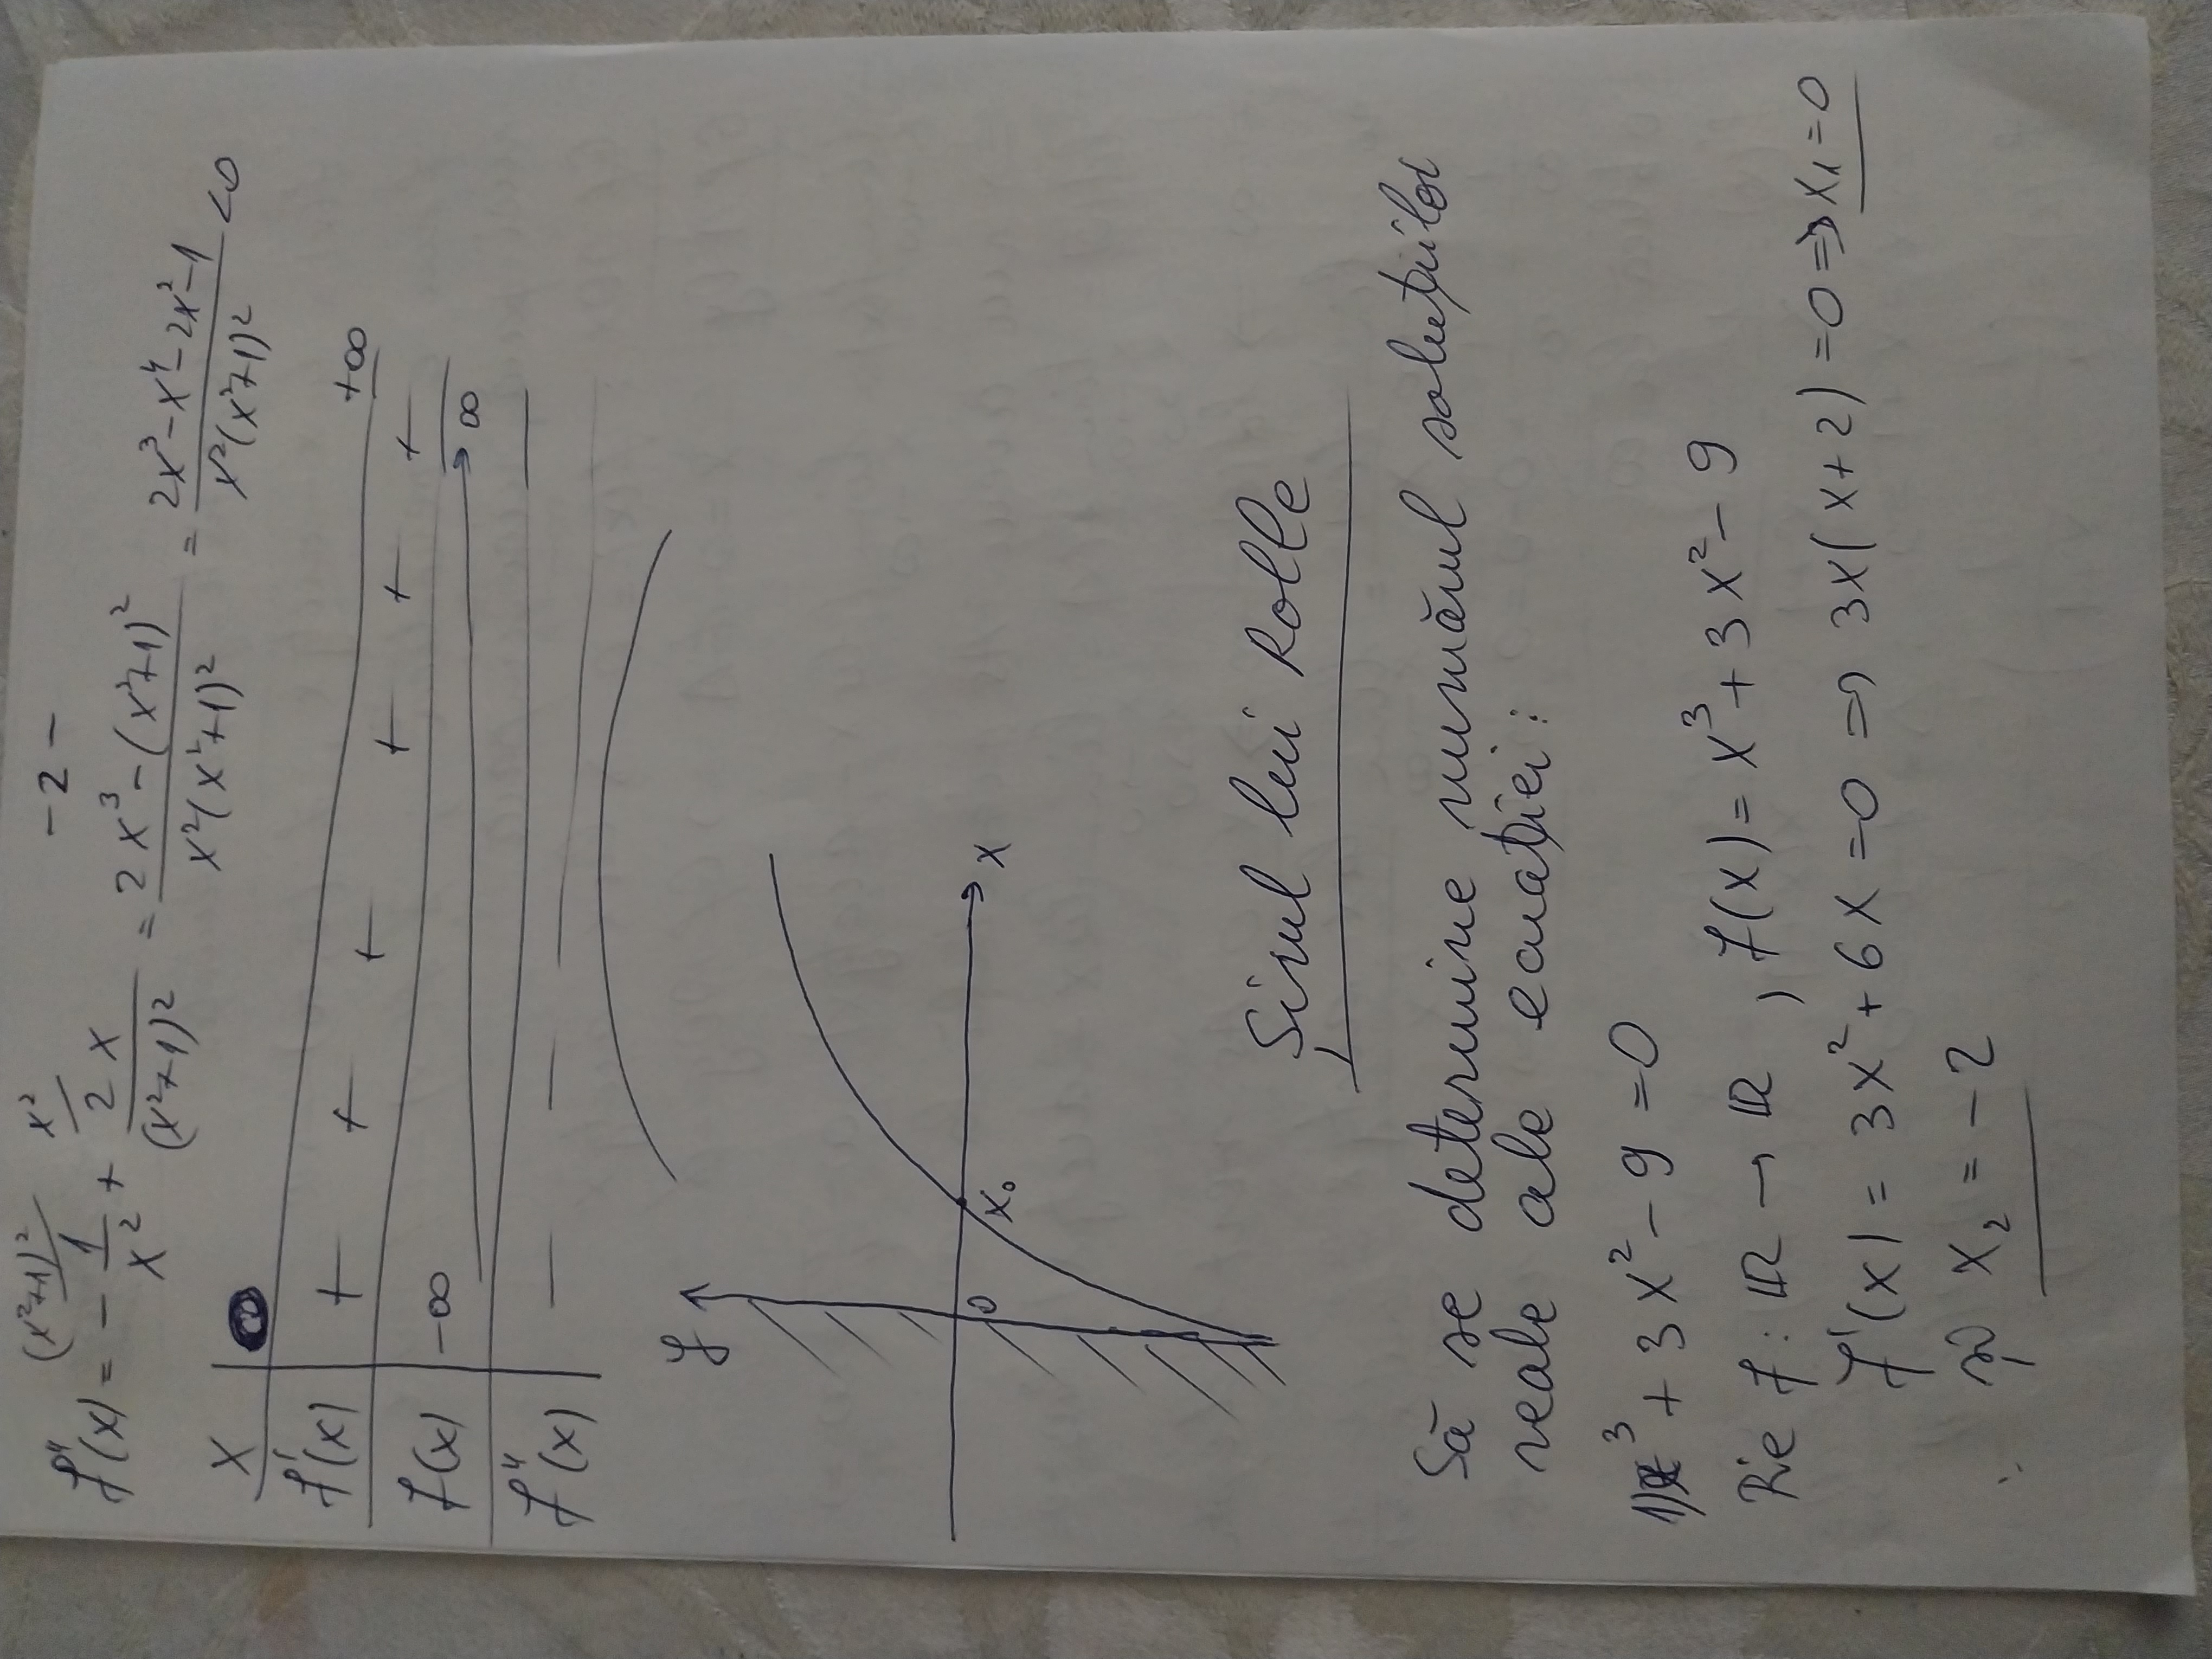 -2-
f''(x) = - 1/x² + 2x/(x²+1)² = (2x³-(x²+1)²)/(x²(x²+1)²) = (2x³-x⁴-2x²-1)/(x²(x²+1)²) <0
(x²+1)² x²
x +∞
f'(x) + + + + + +
f(x) -∞ ∞
f''(x) — — —
y
0 x₀ x
Șirul lui Rolle
Să se determine numărul soluțiilor
reale ale ecuației:
1) x³ + 3x² - 9 = 0
Fie f: ℝ → ℝ, f(x) = x³ + 3x² - 9
f'(x) = 3x² + 6x = 0 => 3x(x+2) = 0 => x₁ = 0
și x₂ = -2